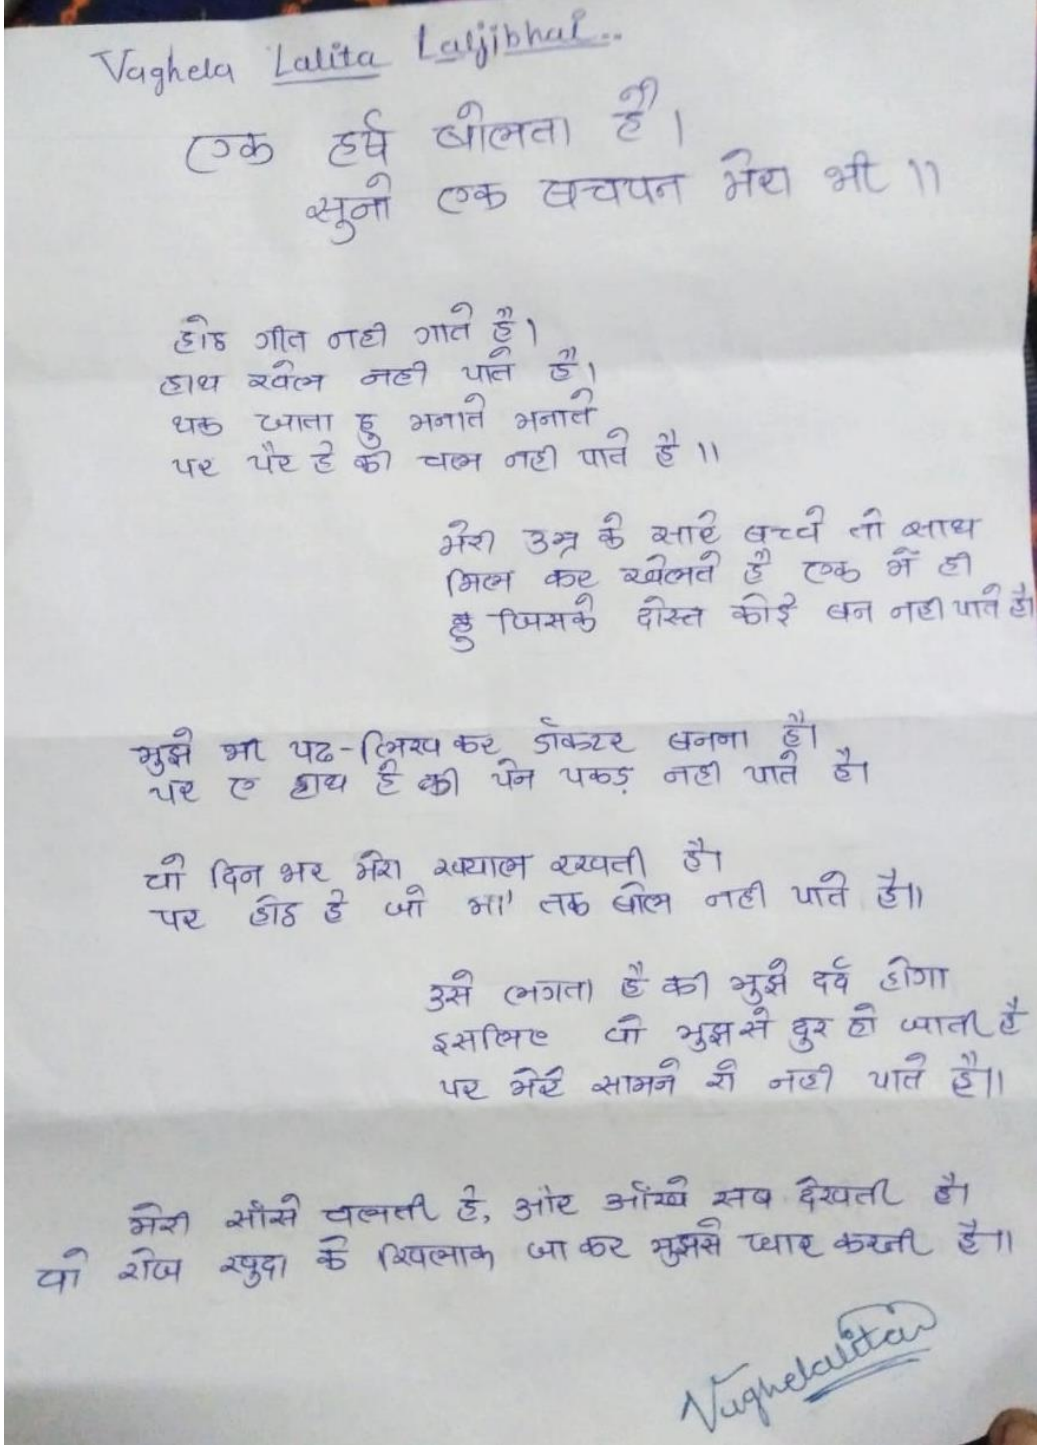 Vaghela Lalita Laljibhai..
एक हर्ष बोलता है।
सुनो एक बचपन मेरा भी ।।
होठ गीत नही गाते है।
हाथ खेल नही पाते है।
थक जाता हु मनाते मनाते
पर पैर हे की चल नही पाते है ।।
मेरी उम्र के सारे बच्चे तो साथ
मिल कर खेलते है एक में ही
हु जिसके दोस्त कोई बन नही पाते है।
मुझे भी पढ-लिख कर डॉक्टर बनना है।
पर ए हाथ हे की पेन पकड़ नही पाते है।
वो दिन भर मेरा ख्याल रखती है।
पर होठ हे जो मा' तक बोल नही पाते है।।
उसे लगता है की मुझे दर्द होगा
इसलिए वो मुझसे दुर हो जाती है
पर मेरे सामने रो नही पाते है।।
मेरी साँसे चलती हे, और आँखे सब देखती है।
वो रोज खुदा के खिलाफ जा कर मुझसे प्यार करती है।।
Vaghelalita